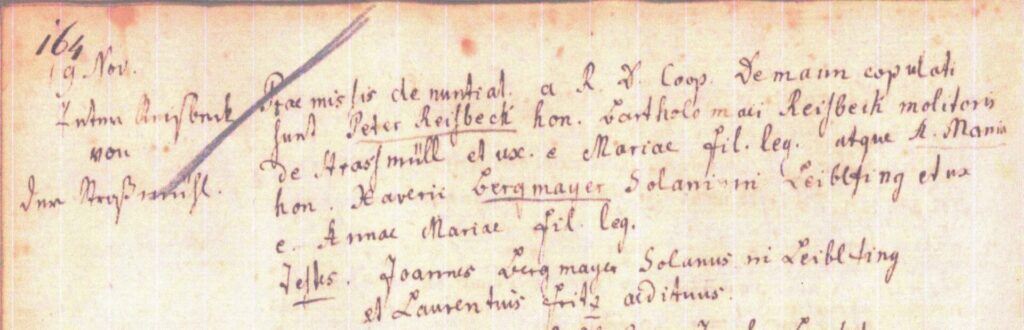 164
19 Nov.
Peter Reisbeck
von
der Straßmühl.
Praemissis denuntiat. a R. D. Coop. Demann copulati
sunt Peter Reisbeck hon. Bartholomaei Reisbeck molitoris
de Strassmüll et ux. e Mariae fil. leg. atque A. Maria
hon. Xaverii Bergmayer Solani in Leiblfing et ux
e. Annae Mariae fil. leg.
Testes. Joannes Bergmayer Solanus in Leiblfing
et Laurentius Fritz aedituus.